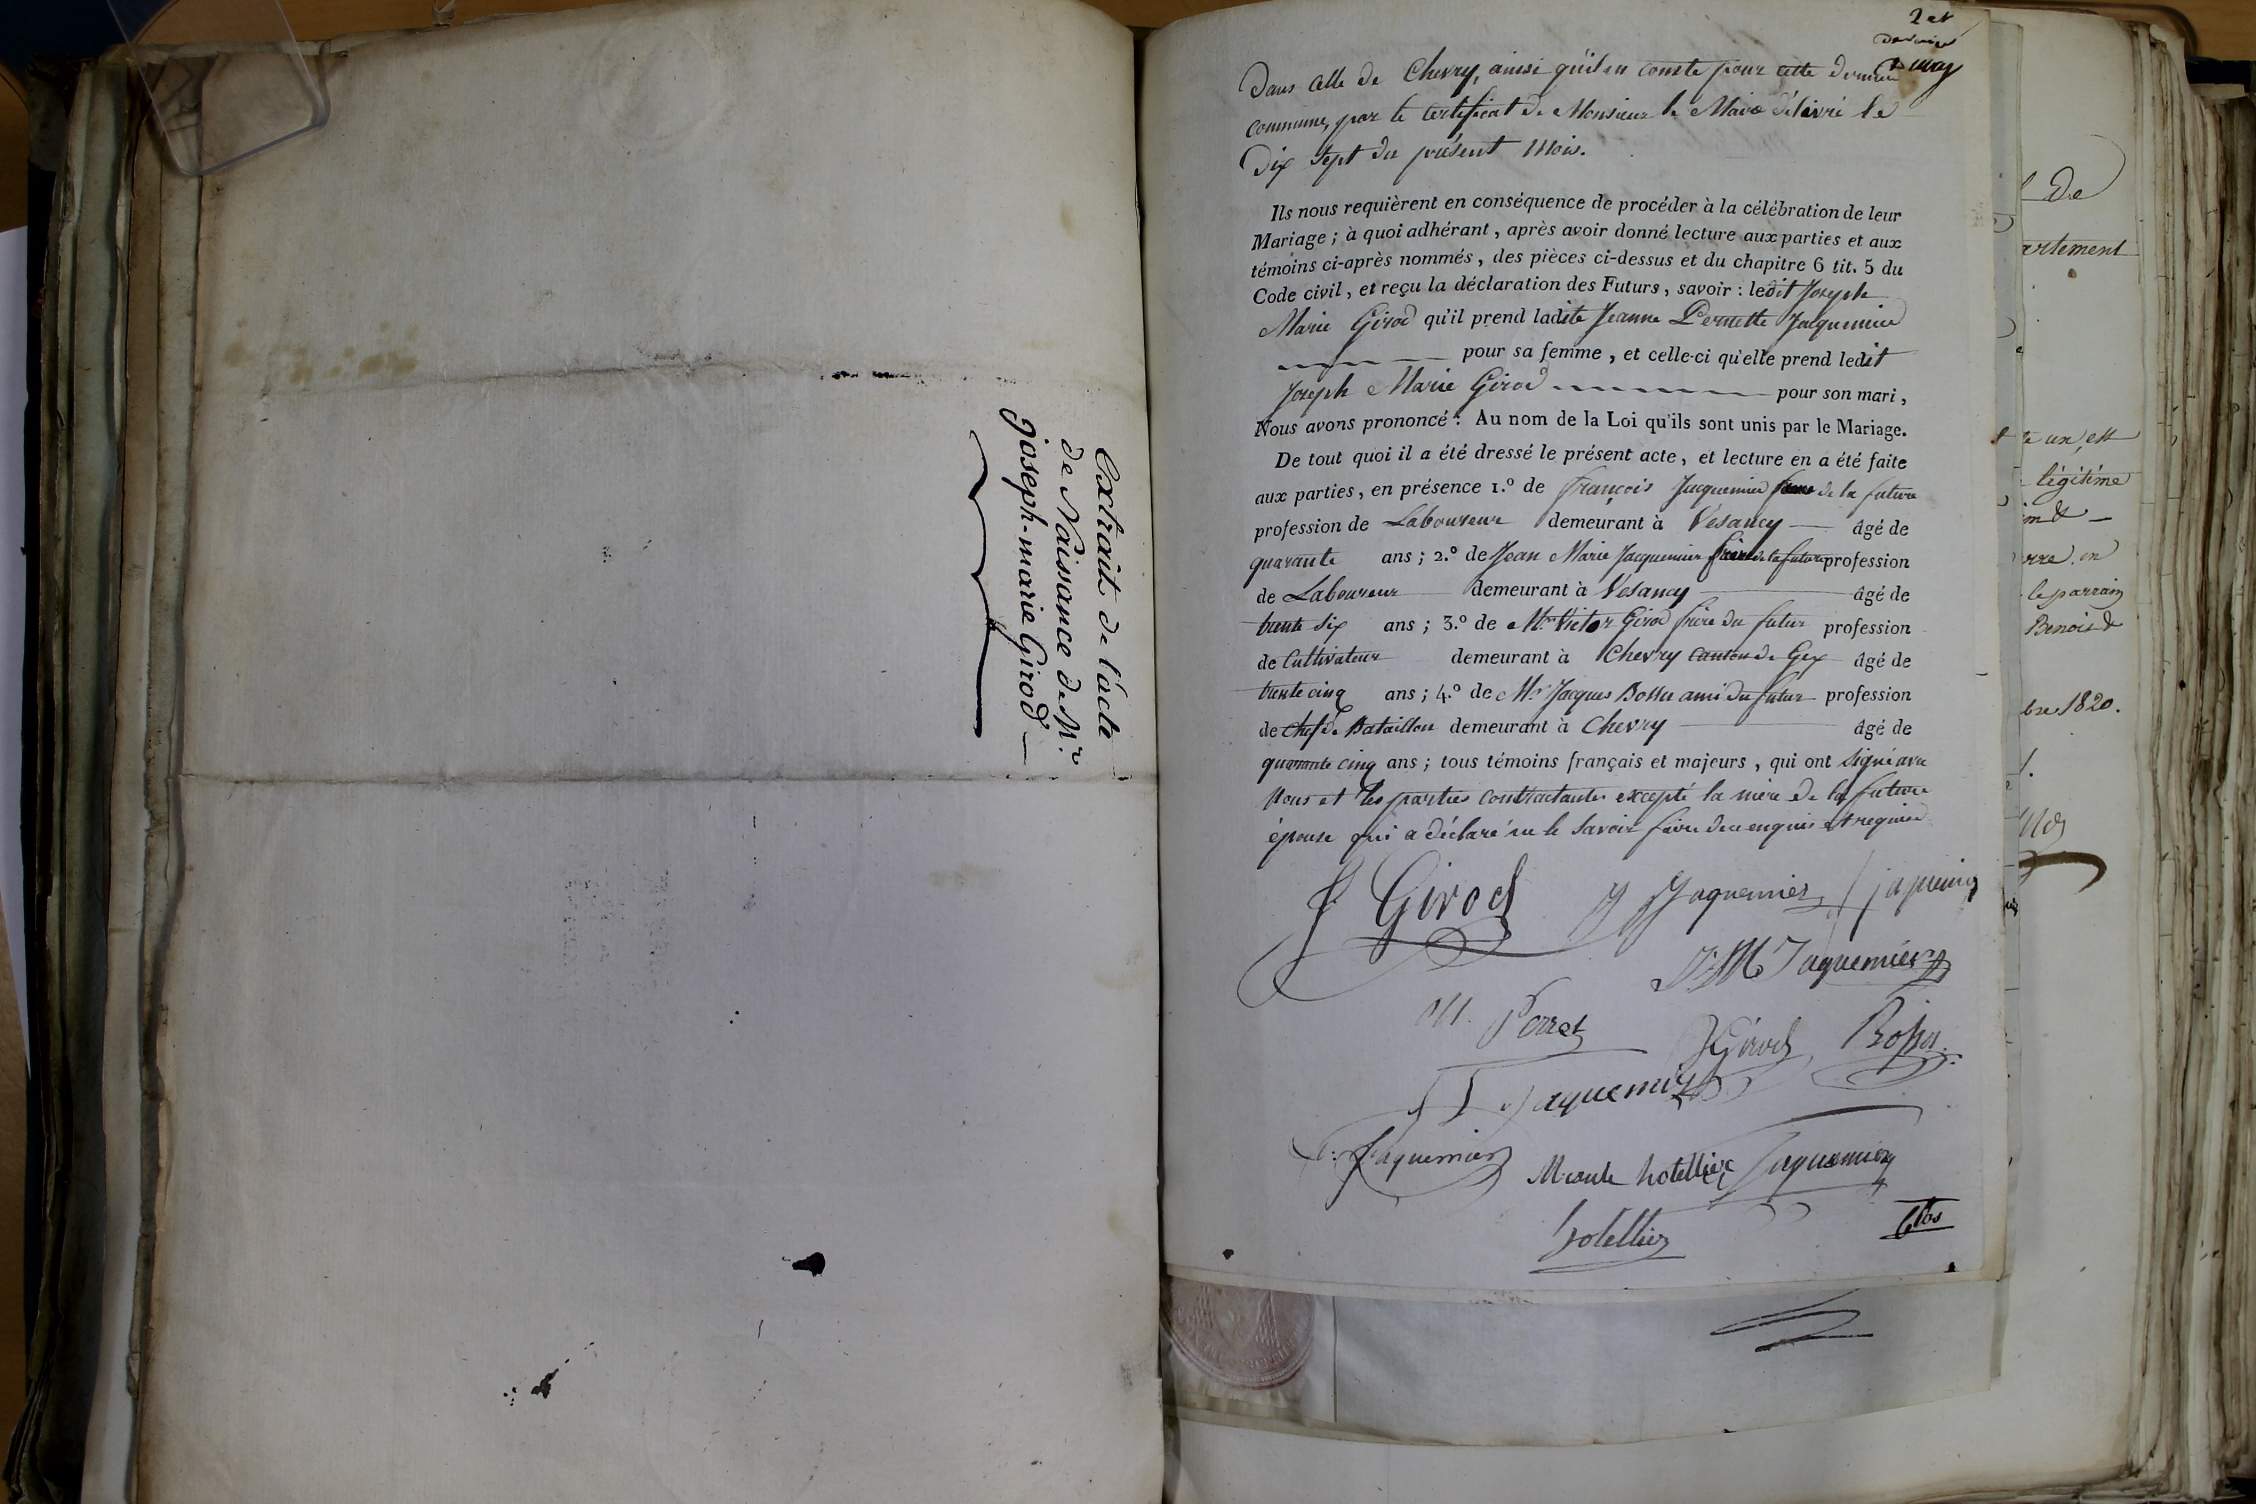 Extrait de l'acte
de Naissance de Mr
joseph-marie Girod
2 et
dernier
Dans celle de Chevry, ainsi qu'il en conste pour cette dernière
commune, par le certificat de Monsieur le Maire délivré le
Dix sept du présent Mois.
Ils nous requièrent en conséquence de procéder à la célébration de leur
Mariage ; à quoi adhérant, après avoir donné lecture aux parties et aux
témoins ci-après nommés, des pièces ci-dessus et du chapitre 6 tit. 5 du
Code civil, et reçu la déclaration des Futurs, savoir : ledit Joseph
Marie Girod qu'il prend ladite Jeanne Pernette Jaquemier
pour sa femme, et celle-ci qu'elle prend ledit
Joseph Marie Girod pour son mari,
Nous avons prononcé : Au nom de la Loi qu'ils sont unis par le Mariage.
De tout quoi il a été dressé le présent acte, et lecture en a été faite
aux parties, en présence 1.º de François Jacquemier de la future
profession de Laboureur demeurant à Vesancy âgé de
quarante ans ; 2.º de Jean Marie Jacquemier frère de la future profession
de Laboureur demeurant à Vesancy âgé de
trente six ans ; 3.º de Mr Victor Girod frère du futur profession
de Cultivateur demeurant à Chevry canton de Gex âgé de
trente cinq ans ; 4.º de Mr Jacques Bossu ami du futur profession
de chef de Bataillon demeurant à Chevry âgé de
quarante cinq ans ; tous témoins français et majeurs, qui ont signé avec
Nous et les parties contractantes excepté la mère de la future
épouse qui a déclaré ne le savoir faire de ce enquis et requise
J Girod Jaquemier
J M Jaquemier
M. Perret VGirod Bossu
Jaquemier
Jaquemier hotellier Jaquemier
hotellier
De
artement
te un, est
légitime
erre, en
le parrain
Benoist
bre 1820.